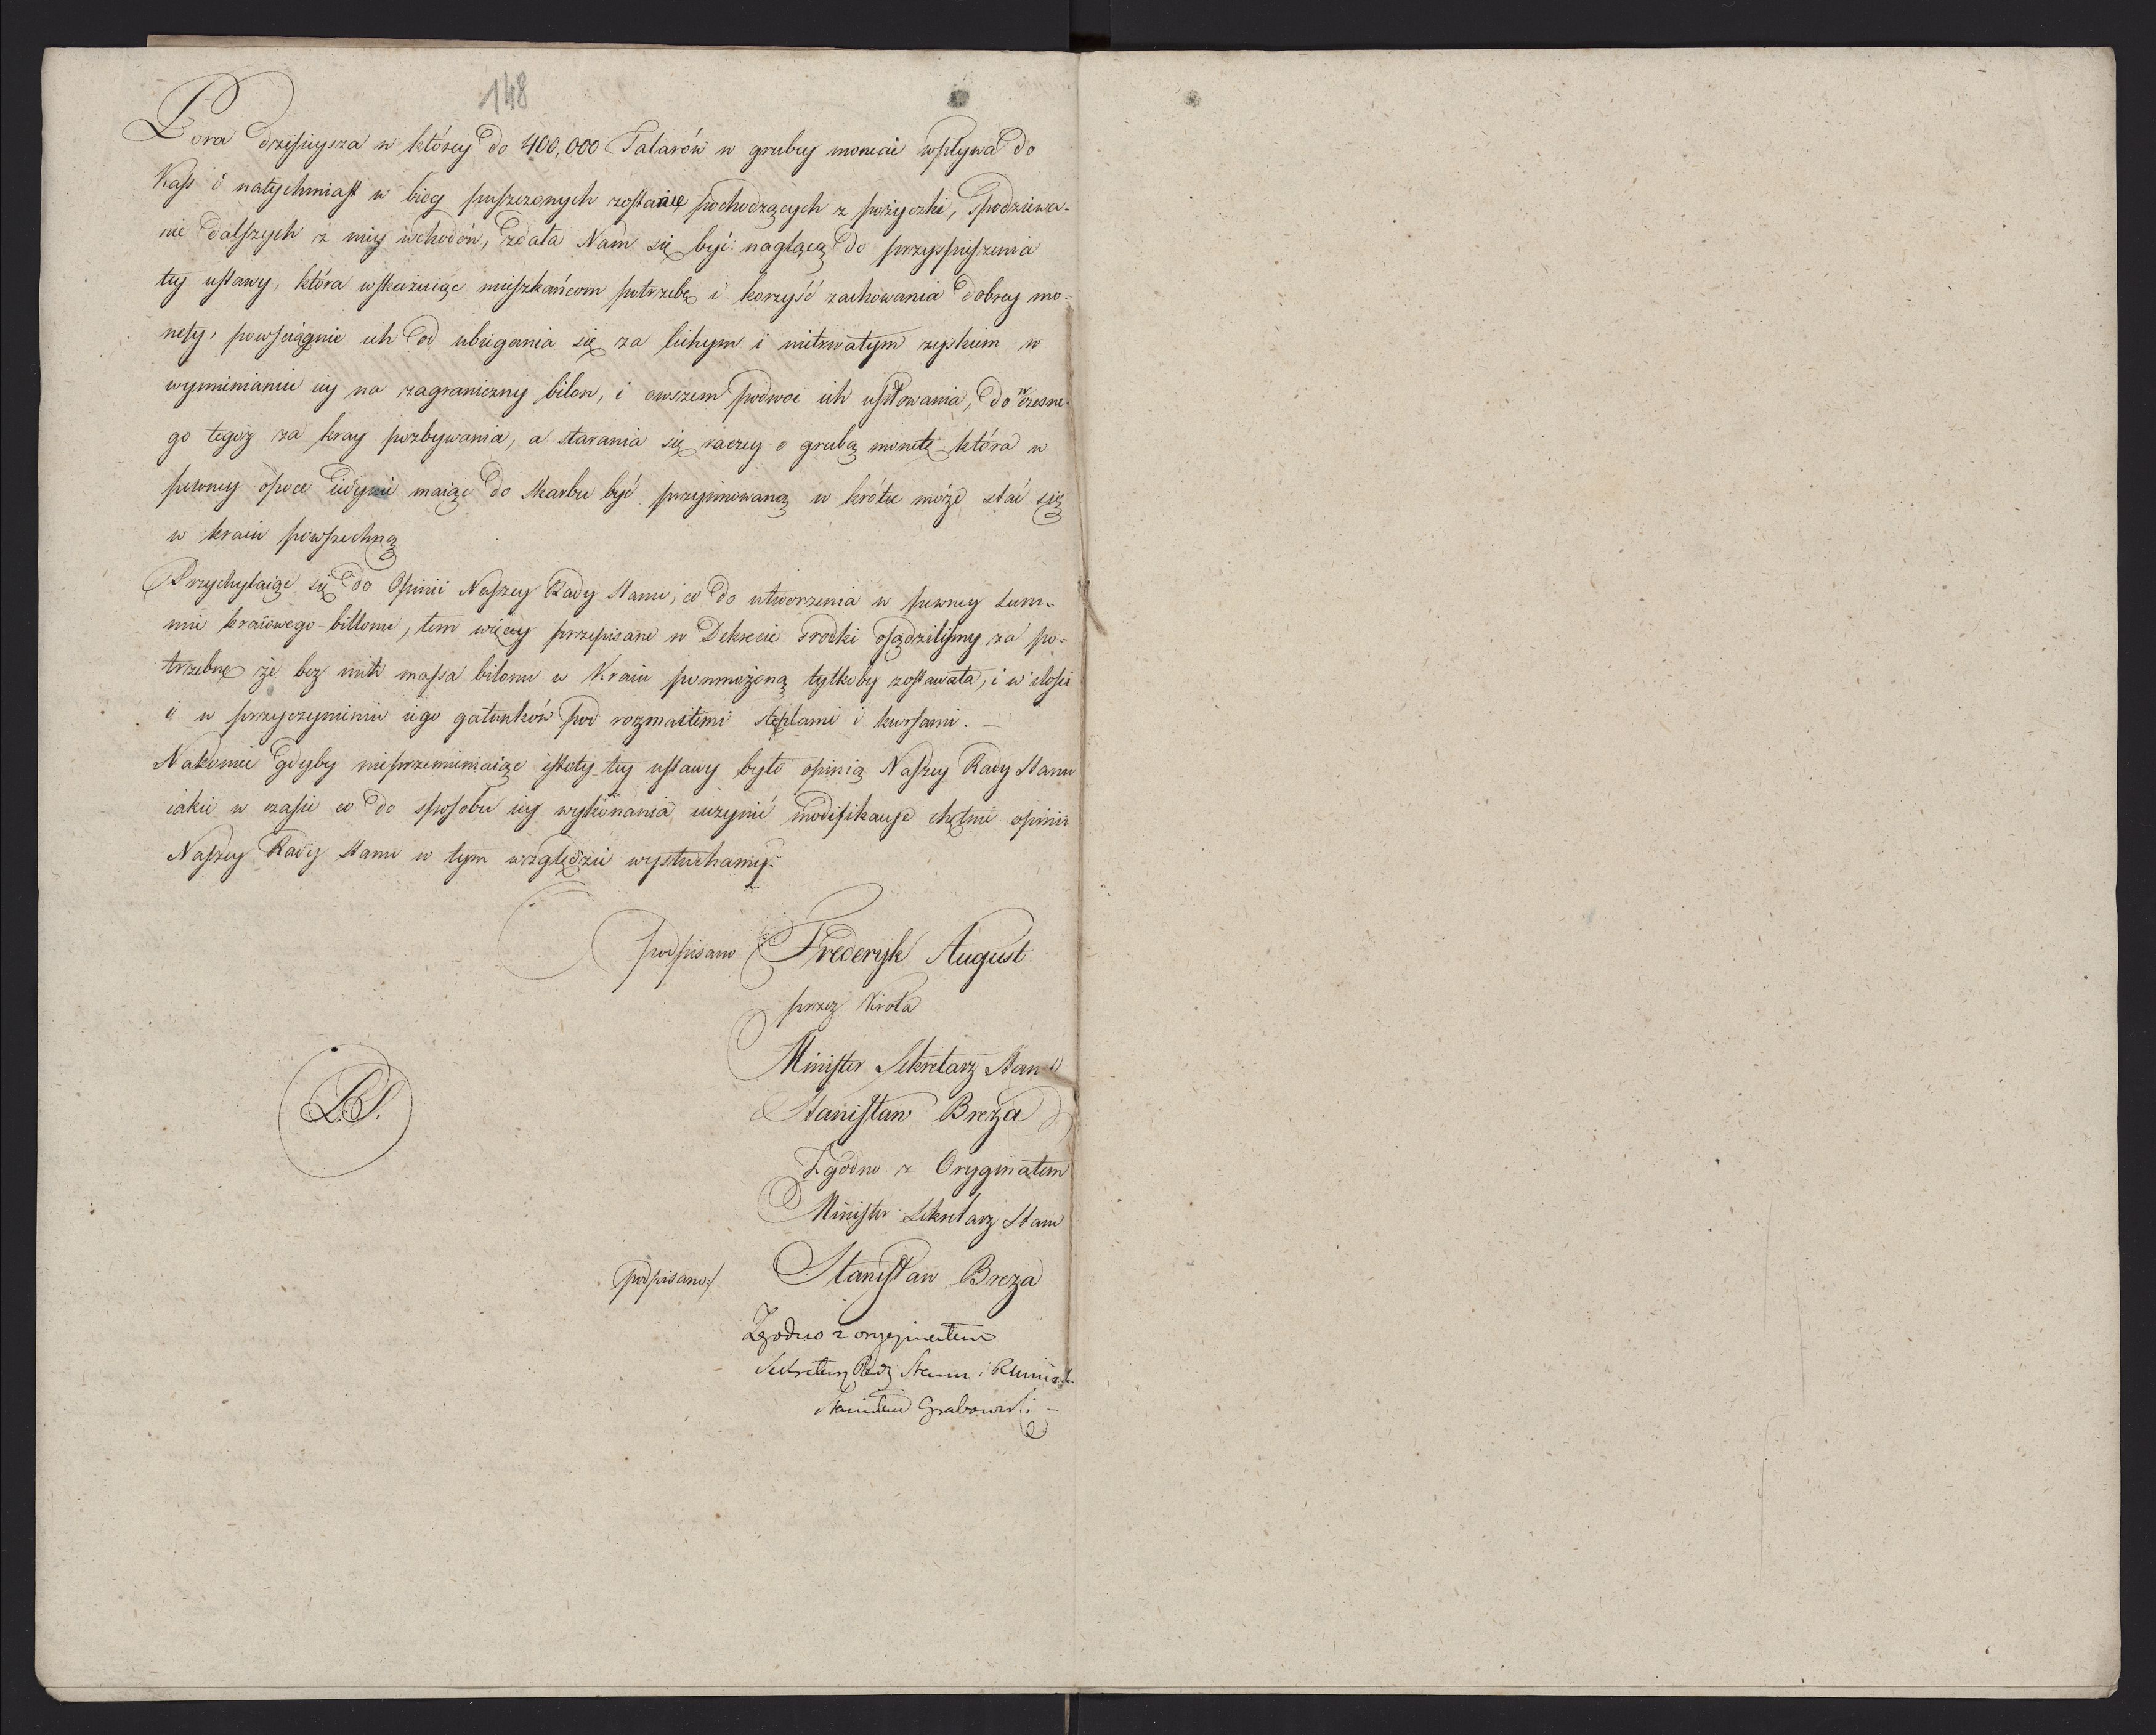 148
Pora dzisieysza w którey do 400,000 Talarów w grubey monecie wpływa do
Kass i natychmiast w bieg puszczonych zostanie pochodzących z pożyczki, spodziewa-
nie dalszych z niey wchodów, zdała Nam się być naglącą do przyspieszenia
tey ustawy, która wskazuiąc mieszkańcom potrzebę i korzyść zachowania dobrey mo-
nety, powściągnie ich od ubiegania się za lichym i nietrwałym zyskiem w
wymienianiu iey na zagraniczny bilon, i owszem podwoi ich usiłowania, do wczesne-
go tegoż za kray pozbywania, a starania się raczey o grubą monetę która w
pewney epoce iedynie maiąc do Skarbu być przyimowaną w krótce może stać się
w kraiu powszechną
Przychylaiąc się do Opinii Naszey Rady Stanu, co do utworzenia w pewney Sum-
mie kraiowego billonu, tem więcey przepisane w Dekrecie srodki osądziliśmy za po-
trzebne że bez nich massa bilonu w Kraiu pomnożoną tylkoby zostawała, i w ilości
i w przyczynieniu iego gatunków pod rozmaitemi steplami i kursami. —
Nakoniec gdyby nieprzemieniaiąc istoty tey ustawy było opinią Naszey Rady Stanu
iakie w czasie co do sposobu iey wykonania uczynić modifikacye chętnie opinii
Naszey Rady Stanu w tym względzie wysłuchamy.
podpisano Frederyk August
przez Króla
Minister Sekretarz Stanu
Stanisław Breza
L.S.
Zgodno z Oryginałem
Minister Sekretarz Stanu
podpisano/ Stanisław Breza
Zgodno z oryginałem
Sekretarz Rady Stanu i R. Minist
Stanisław Grabowski —